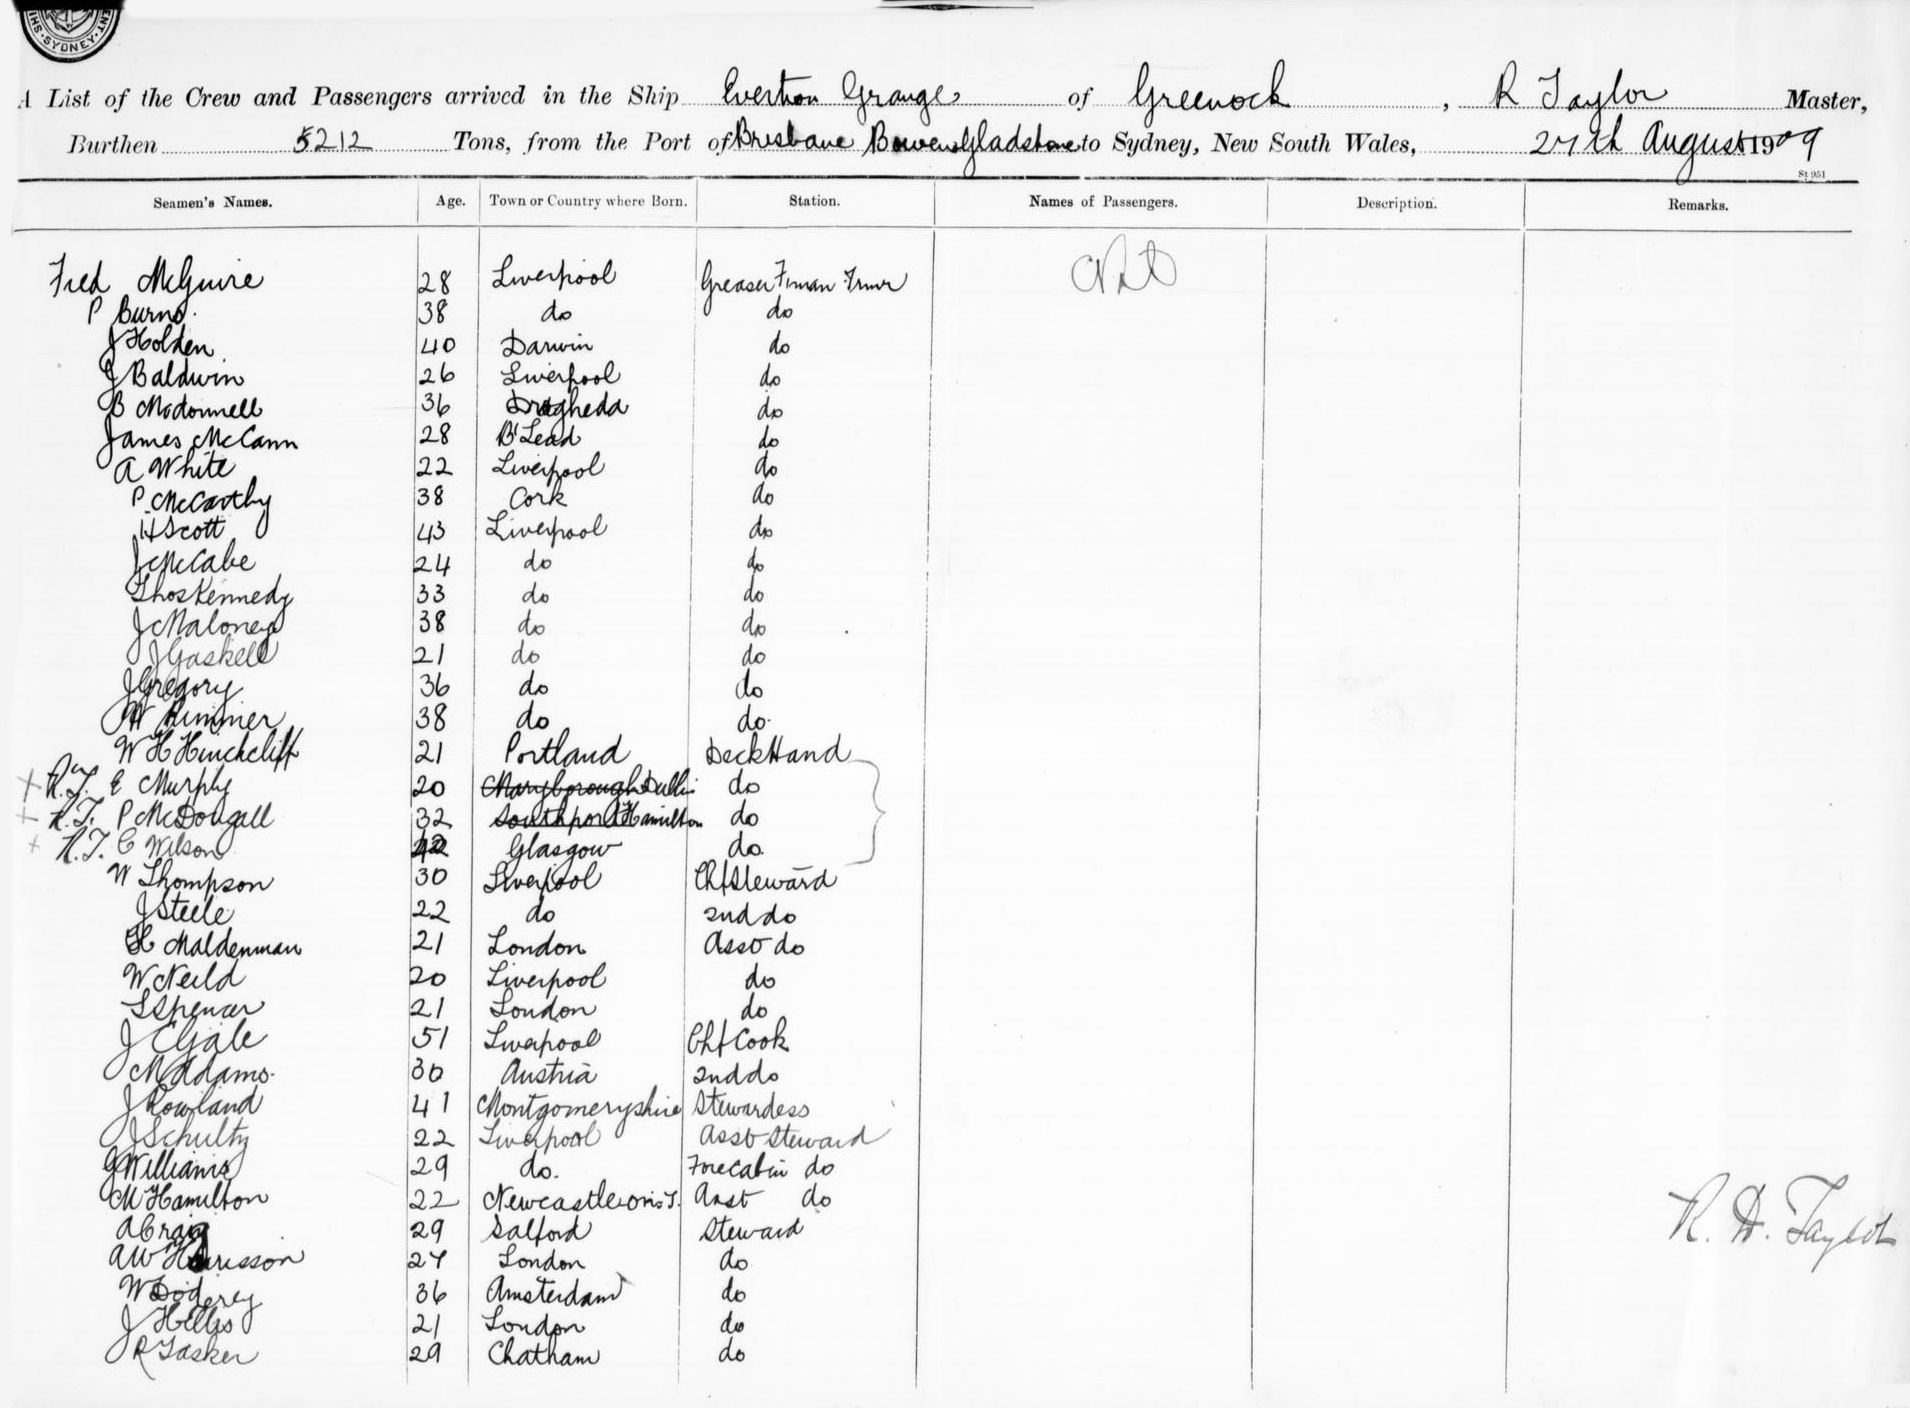 SYDNEY
A List of the Crew and Passengers arrived in the Ship Everton Grange of Greenock, R Taylor Master,
Burthen 5212 Tons, from the Port of Brisbane Bowen Gladstone to Sydney, New South Wales, 27th August 1909
St 951
Seamen's Names. Age. Town or Country where Born. Station. Names of Passengers. Description. Remarks.
Fred McGuire 28 Liverpool Greaser Fman Trmr Nil
P Burns 38 do do
J Holden 40 Darwin do
J Baldwin 26 Liverpool do
B Mcdonnell 36 Drogheda do
James McCann 28 B'Lead do
A White 22 Liverpool do
P McCarthy 38 Cork do
H Scott 43 Liverpool do
J McCabe 24 do do
Thos Kennedy 33 do do
J Maloney 38 do do
J Gaskell 21 do do
J Gregory 36 do do
W Rimmer 38 do do
W H Hinchcliff 21 Portland Deck Hand
R.T. E Murphy 20 Maryborough Dublin do
R.T. P McDougall 32 Southport Hamilton do
R.T. C Wilson 42 Glasgow do
W Thompson 30 Liverpool Chf Steward
J Steele 22 do 2nd do
H Maldenman 21 London Asst do
W Neild 20 Liverpool do
S Spencer 21 London do
J C Gale 51 Liverpool Chf Cook
M Adams 30 Austria 2nd do
J Rowland 41 Montgomeryshire Stewardess
J Schultz 22 Liverpool Asst Steward
G Williams 29 do. Forecabin do
M Hamilton 22 Newcastle on T. Asst do
A Craig 29 Salford Steward
R. H. Taylor
A W Harisson 27 London do
W Doderey 36 Amsterdam do
J Hellis 21 London do
R Tasker 29 Chatham do